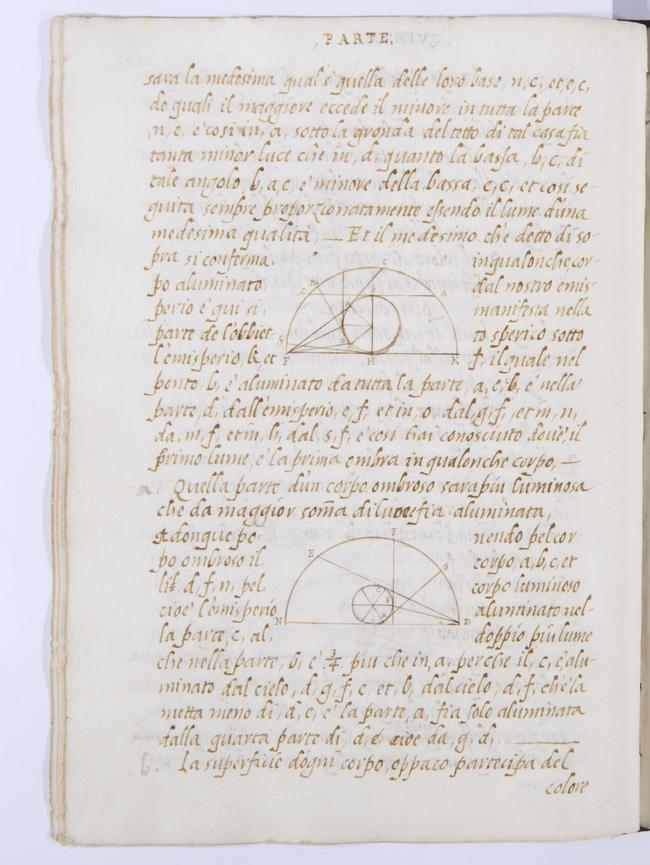 PARTE.
sara la medesima qual'è quella delle loro base, n, c, et, e, c,
de quali il maggiore eccede il minore in tutta la parte
, n, e, e così in, a, sotto la gronda del tetto di tal casa fia
tanta minor luce che in, d, quanto la bassa, b, c, di
tale angolo, b, a, c, e' minore della bassa, e, c, et così se-
guita sempre proporzionatamente essendo il lume d'una
medesima qualità, — Et il medesimo ch'è detto di so-
pra si conferma in qualonche cor-
po aluminato dal nostro emis-
perio e' qui si manifesta nella
parte de l'obbiet to sperico sotto
l'emisperio, k, et f, il quale nel
ponto, b, e' aluminato da tutta la parte, a, c, b, e' nella
parte, d, dall'emisperio, e, f, et in, o, dal, g, f, et in, n,
da, m, f, et in, h, dal, s, f, e così hai conosciuto dov'è il
primo lume, e la prima ombra in qualonche corpo, —
a. Quella parte d'un corpo ombroso sara più luminosa
che da maggior soma di lume fia aluminata,
Adonque po nendo pel cor-
po ombroso il corpo, a, b, c, et
lit, d, f, n, pel corpo luminoso
cioè l'emisperio aluminato nel-
la parte, c, al doppio più lume
che nella parte, b, e' 3/4 più che in, a, perche il, c, è alu-
minato dal cielo, d, g, f, c, et, b, dal cielo, d, f, ch'è la
metta meno di, d, e, e' la parte, a, fia solo aluminata
dalla quarta parte di, d, e cioe da, g, d,
6. La superficie d'ogni corpo oppaco partecipa del
colore
C
m
A
S
F
H
K
E
F
G
N
D